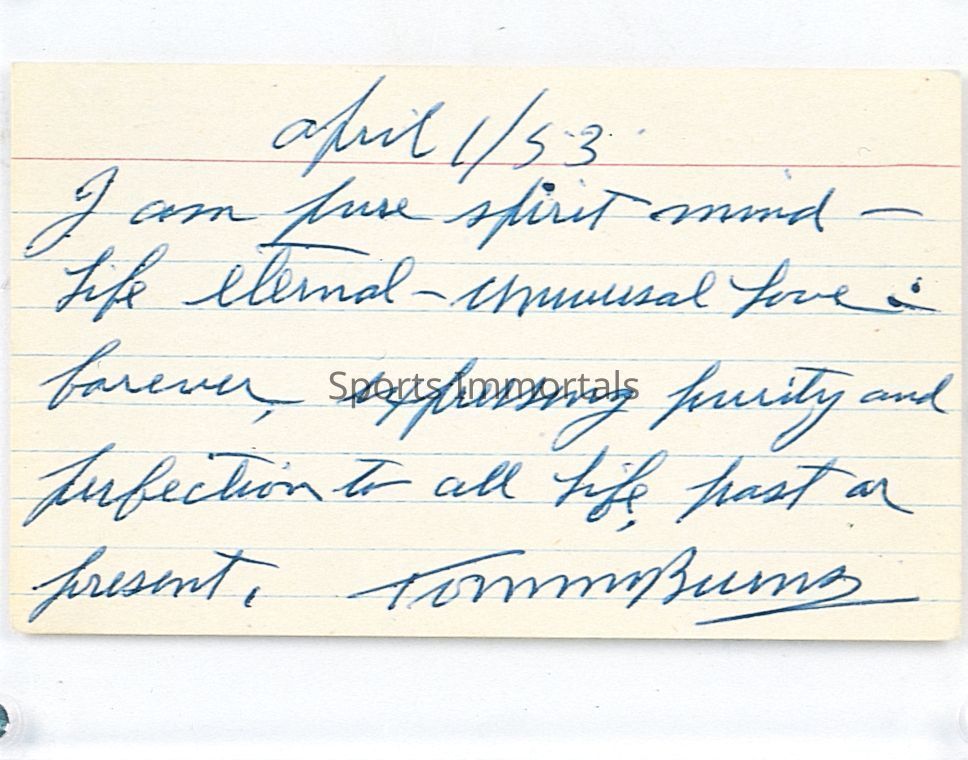 april 1/53
I am pure spirit mind —
Life eternal – Universal Love :
forever, expressing purity and
Sports Immortals
perfection to all life, past or
present. Tommy Burns